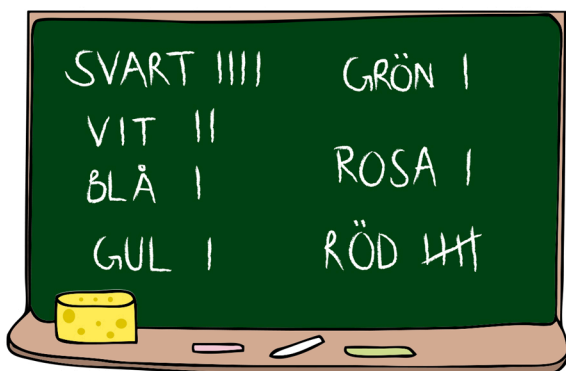 SVART IIII
VIT II
BLÅ I
GUL I
GRÖN I
ROSA I
RÖD 卌